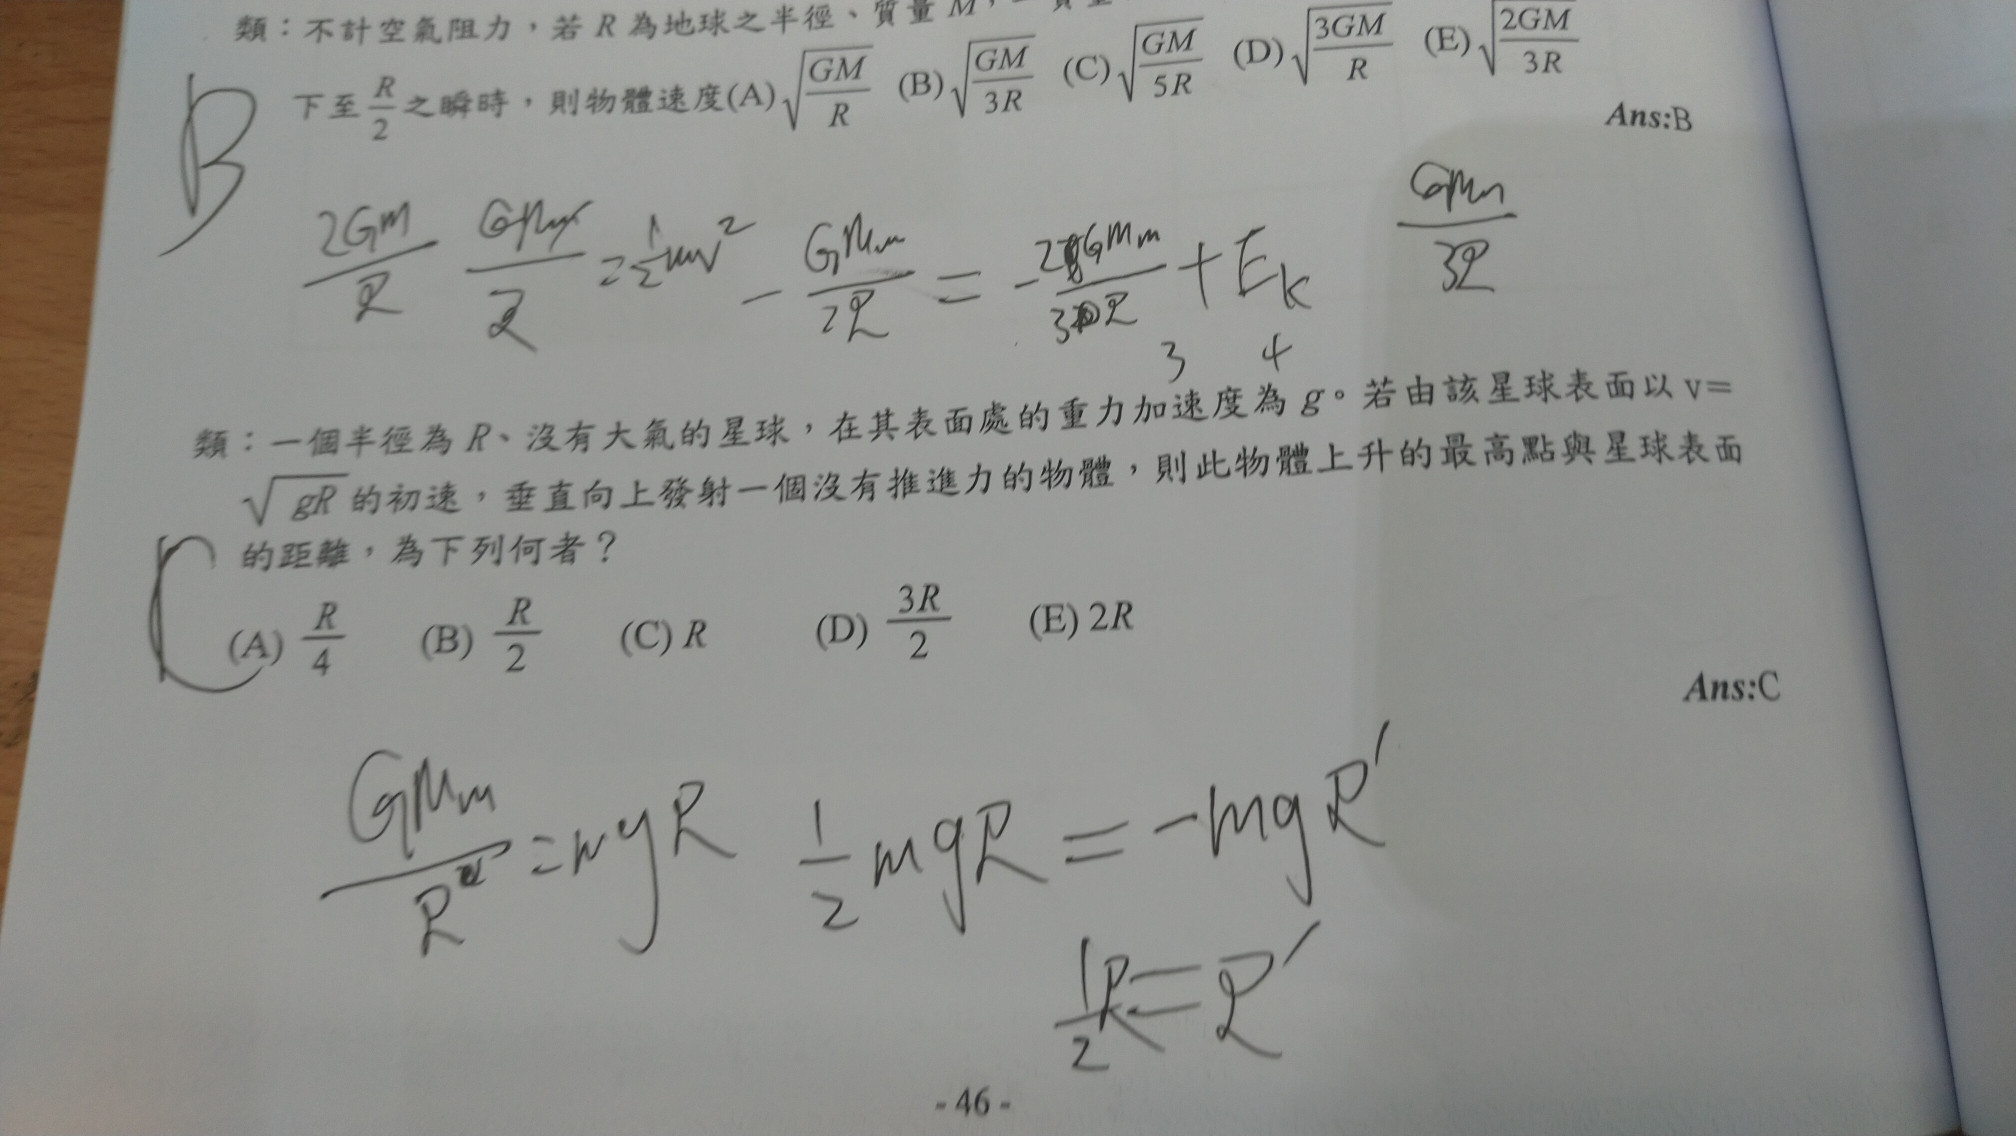 類：不計空氣阻力，若 R 為地球之半徑、質量 M，一質量
下至 R/2 之瞬時，則物體速度(A)√(GM/R) (B)√(GM/3R) (C)√(GM/5R) (D)√(3GM/R) (E)√(2GM/3R)
Ans:B
B
2GM/R GMm/2 = 1/2 mv² - GMm/2R = - 2GMm/3R + Ek
GMm/3R
3 4
類：一個半徑為 R、沒有大氣的星球，在其表面處的重力加速度為 g。若由該星球表面以 v=
√gR 的初速，垂直向上發射一個沒有推進力的物體，則此物體上升的最高點與星球表面
的距離，為下列何者？
C
(A) R/4 (B) R/2 (C) R (D) 3R/2 (E) 2R
Ans:C
GMm/R = mgR 1/2 mgR = -mgR'
1/2 R = R'
- 46 -